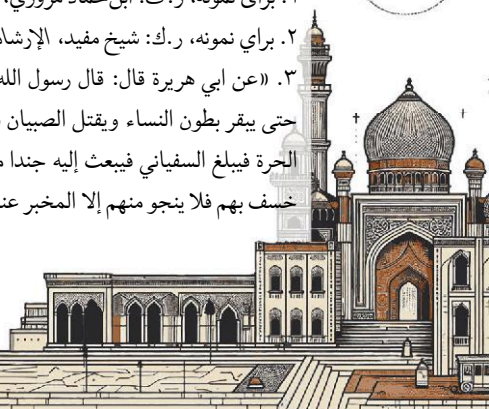 ۱. برای نمونه، ر.ک: ابن‌حماد مروزي،
۲. براي نمونه، ر.ك: شيخ مفيد، الإرشاد
۳. «عن ابي هريرة قال: قال رسول الله
حتى يبقر بطون النساء ويقتل الصبيان
الحرة فيبلغ السفياني فيبعث إليه جندا
خسف بهم فلا ينجو منهم إلا المخبر